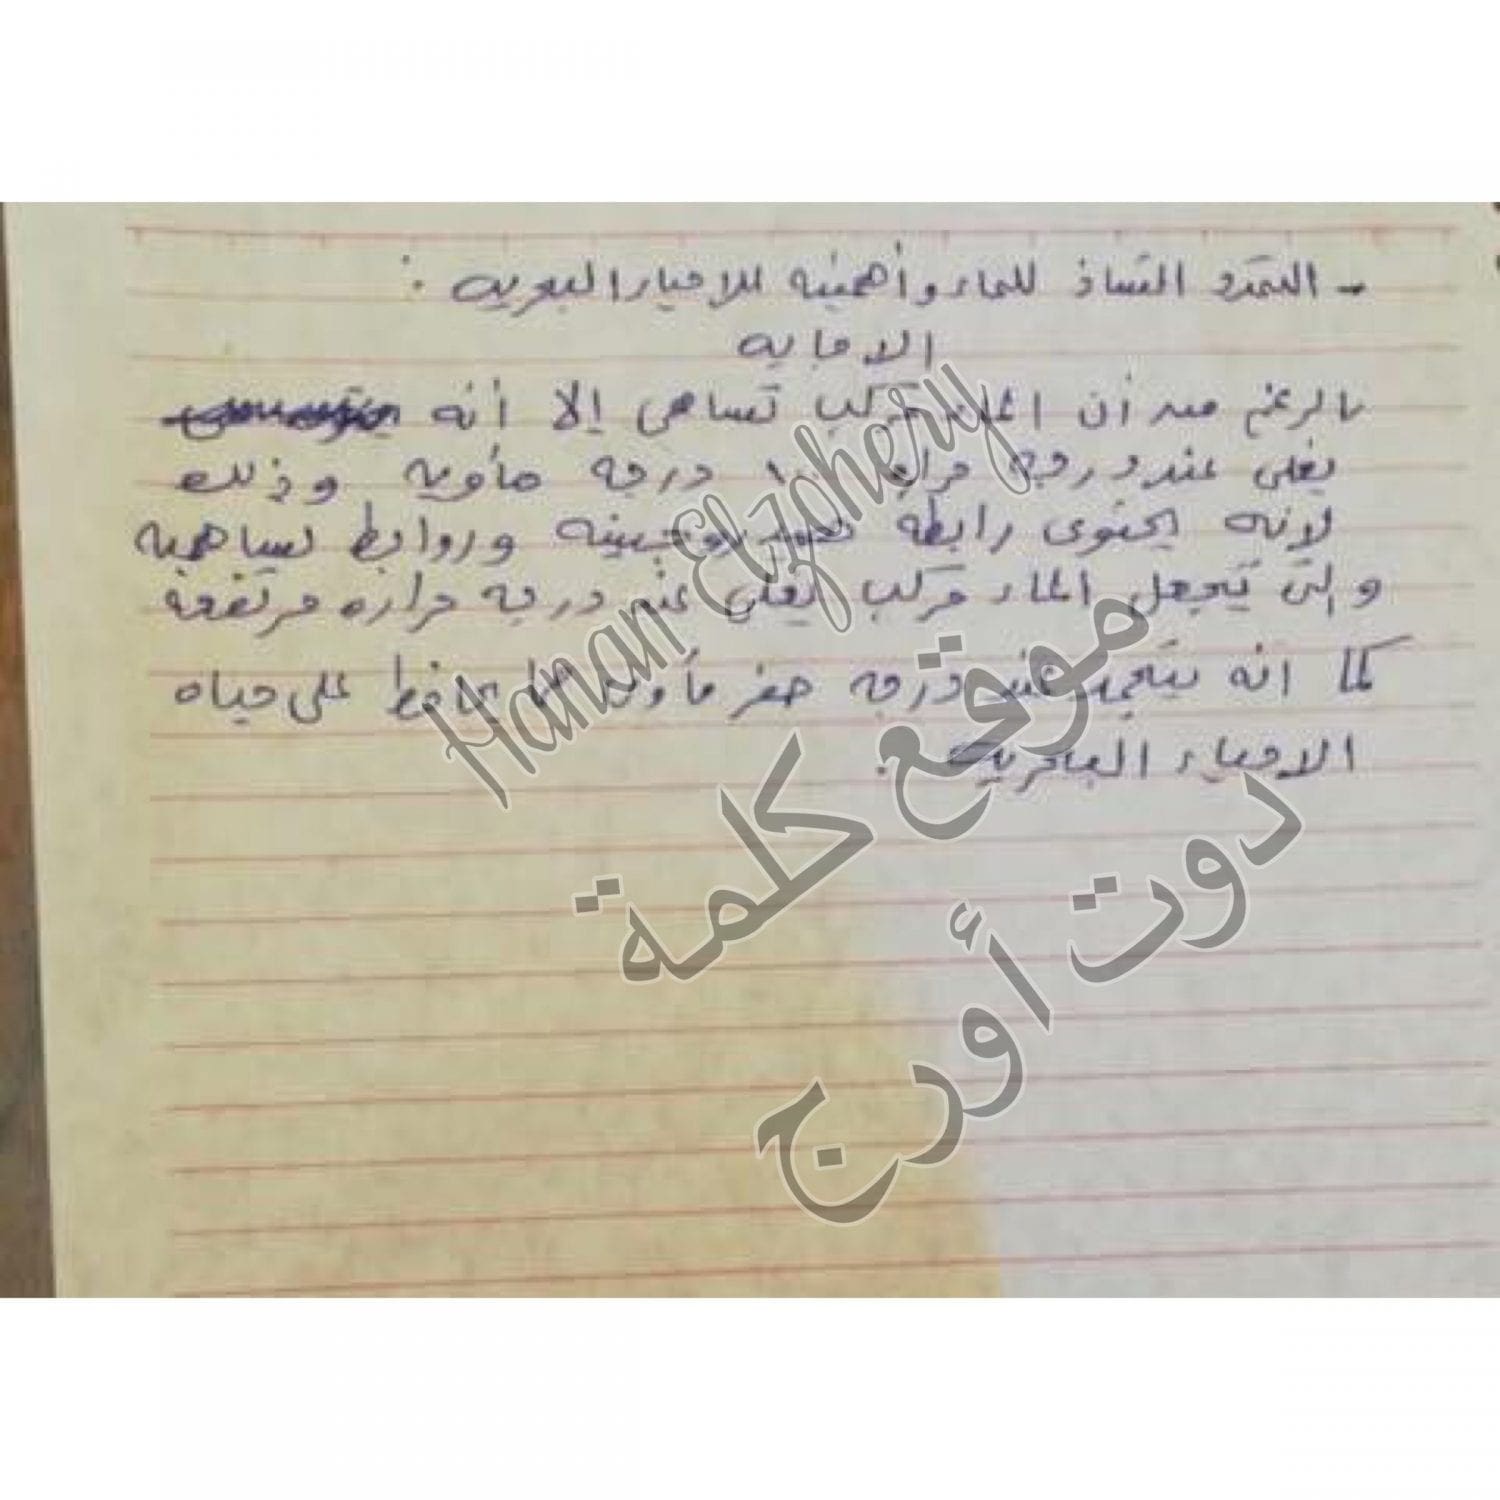 - التمدد الشاذ للماء وأهميته للاحياء البحريه :
الاجابه
بالرغم من أن الماء مركب تساهمى إلا أنه
يغلى عند درجه حراره ١٠٠ درجه مأويه وذلك
لانه يحتوى رابطه هيدروجينيه وروابط تساهميه
والتى تجعل الماء مركب يغلى عند درجه حراره مرتفعه
كما انه يتجمد عند درجه صفر مأويه مما يحافظ على حياه
الاحياء البحريه .
Hanan Elzghery
موقع كلمة
دوت أورج